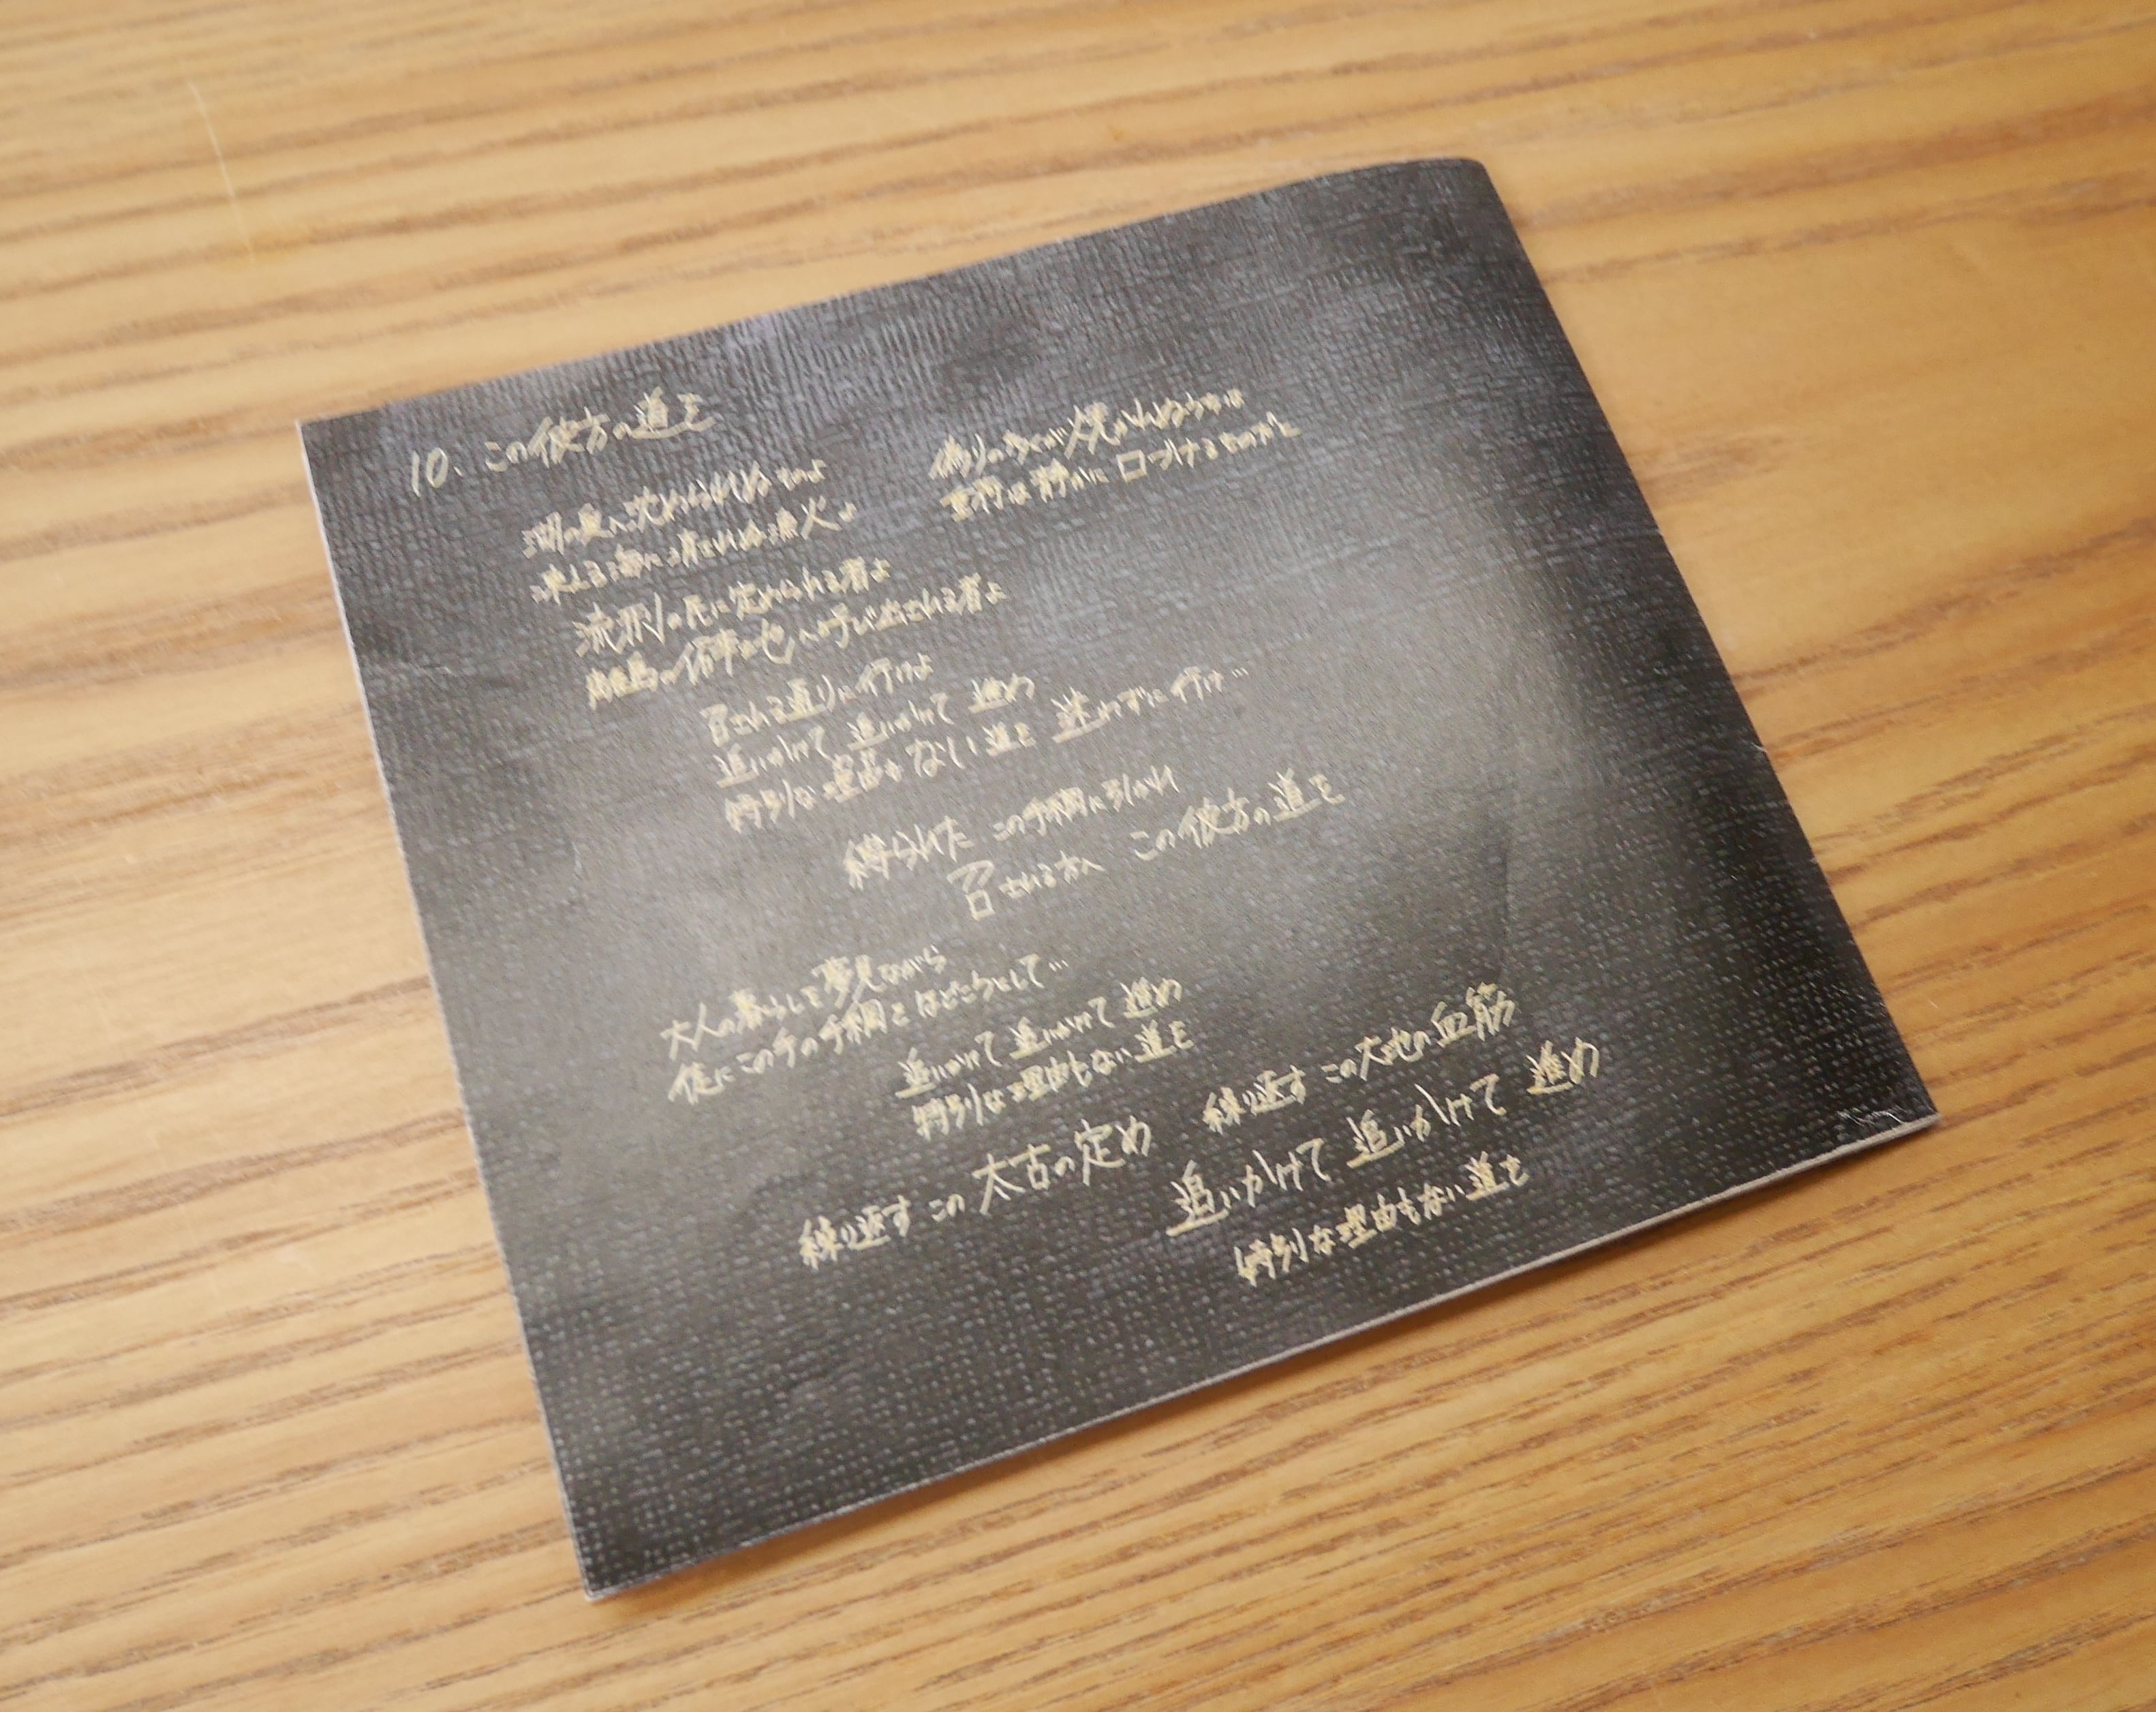 10. この彼方の道を
湖の奥に沈められぬ
凍える海に消されぬ漁火よ
流刑の民に定められる者よ
離島の倚車の地へ呼び出される者よ
偽りの久が焼かれぬうちは
静かに口づけるものだと
召される通りに行けよ
追いかけて 追いかけて 進め
特別な理由もない道を 迷わずに行け…
縛られた この手綱に引かれ
召される方へ この彼方の道を
大人の暮らしを夢見ながら
僕にこの手の手綱をほどこうとして…
追いかけて 追いかけて 進め
特別な理由もない道を
繰り返す この 太古の定め 繰り返す この大地の血筋
追いかけて 追いかけて 進め
特別な理由もない道を